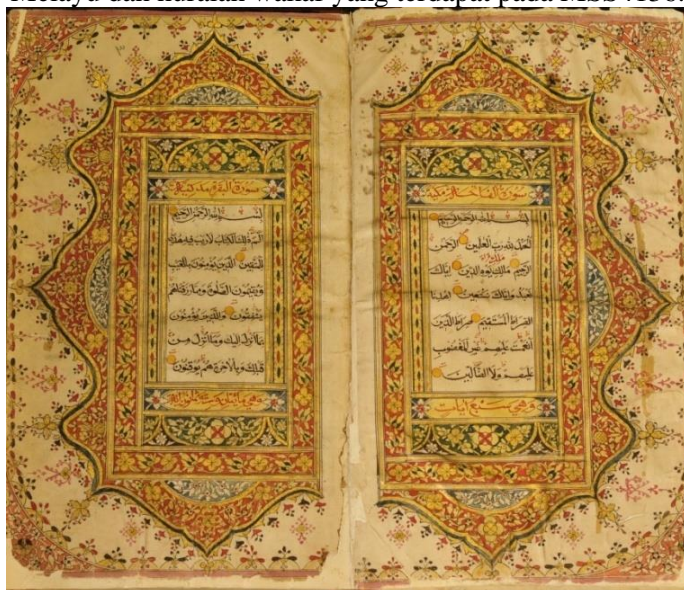 Melayu dan huraian wakaf yang terdapat pada MSS
سورة الفاتحة مكية
بسم الله الرحمن الرحيم
الحمد لله رب العلمين الرحمن
الرحيم مالك يوم الدين اياك
نعبد واياك نستعين اهدنا
الصراط المستقيم صراط الذين
انعمت عليهم غير المغضوب
عليهم ولا الضالين
وهي سبع ايات
سورة البقرة مدنية
بسم الله الرحمن الرحيم
الم ذلك الكتاب لاريب فيه هدى
للمتقين الذين يؤمنون بالغيب
ويقيمون الصلوة ومما رزقناهم
ينفقون والذين يؤمنون
بما انزل اليك وما انزل من
قبلك وبالاخرة هم يوقنون
وهي